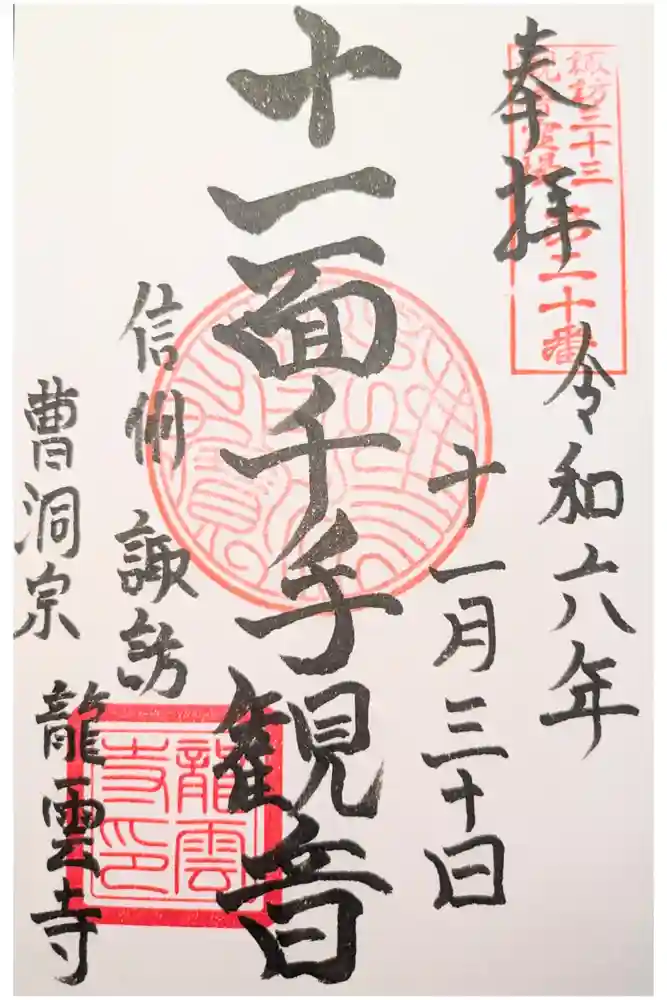 奉拝
諏訪三十三
観音霊場 第二十番
令和六年
十一月三十日
十一面千手観音
信州 諏訪
曹洞宗 龍雲寺
龍雲
寺印